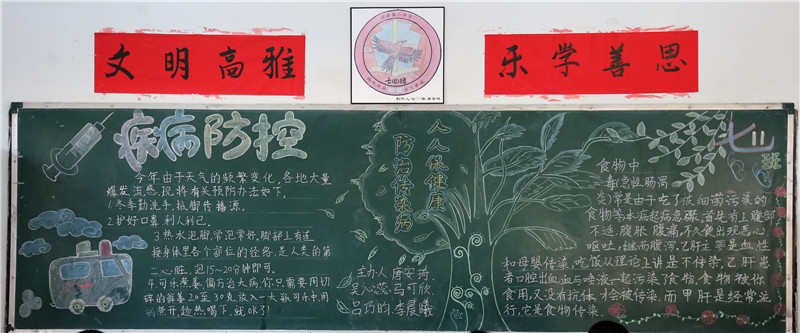 文明高雅
七(四)班
乐学善思
疾病防控
今年由于天气的频繁变化,各地大量
爆发流感,现将有关预防办法如下。
1.冬季勤洗手,抵御传播源。
2.护好口鼻,利人利己。
3.热水泡脚,常泡常好,脚部上有连
接身体里各个部位的经络,是人类的第
二心脏,泡15~20分钟即可。
4.可乐煮姜,偏方治大病,你只需要用切
碎的鲜姜20至30克放入一大瓶可乐中用
煮开,趁热喝下,就OK了!
人人保健康
防治传染病
主办人
李晨曦
七
班
食物中
毒(急性肠胃
炎)常是由于吃了被细菌污染的
食物等本病起病急骤,首先有上腹部
不适,腹胀,腹痛,不久便出现恶心
呕吐,继而腹泻,乙肝主要是血性
和母婴传染,吃饭从理论上讲是不传染,乙肝患
者口腔出血,血与唾液一起污染了食物,食物被你
食用,又没有抗体,才会被传染,而甲肝是经常运
行,它是食物传染。